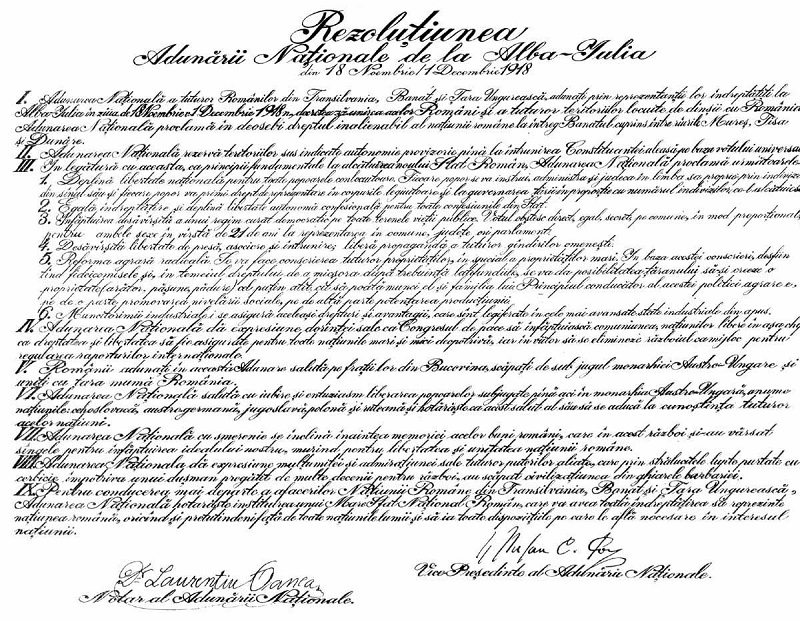 Rezoluțiunea
Adunării Naționale de la Alba-Iulia
din 18 Noembrie/1 Decembrie 1918
I. Adunarea Națională a tuturor Românilor din Transilvania, Banat și Țara Ungurească, adunați prin reprezentanții lor îndreptățiți la
Alba-Iulia în ziua de 18 Noembrie/1 Decembrie 1918, decretează unirea acelor Români și a tuturor teritoriilor locuite de dînșii cu România.
Adunarea Națională proclamă îndeosebi dreptul inalienabil al națiunii române la întreg Banatul cuprins între rîurile Mureș, Tisa
și Dunăre.
II. Adunarea Națională rezervă teritoriilor sus indicate autonomie provizorie pînă la întrunirea Constituantei aleasă pe baza votului universal.
III. În legătură cu aceasta, ca principii fundamentale la alcătuirea noului Stat Român, Adunarea Națională proclamă următoarele:
1. Deplină libertate națională pentru toate popoarele conlocuitoare. Fiecare popor se va instrui, administra și judeca în limba sa proprie prin indivizi
din sînul său și fiecare popor va primi drept de reprezentare în corpurile legiuitoare și la guvernarea țării în proporție cu numărul indivizilor ce-l alcătuiesc.
2. Egală îndreptățire și deplină libertate autonomă confesională pentru toate confesiunile din Stat.
3. Înfăptuirea desăvîrșită a unui regim curat democratic pe toate terenele vieții publice. Votul obștesc direct, egal, secret, pe comune, în mod proporțional,
pentru ambele sexe în vîrstă de 21 de ani la reprezentarea în comune, județe, ori parlament.
4. Desăvîrșită libertate de presă, asociere și întrunire; liberă propagandă a tuturor gîndirilor omenești.
5. Reforma agrară radicală. Se va face conscrierea tuturor proprietăților, în special a proprietăților mari. În baza acestei conscrieri, desființ
tînd fideicomisele și, în temeiul dreptului de a micșora după trebuință latifundiile, se va da posibilitatea țăranului să-și creeze o
proprietate (arător, pășune, pădure) cel puțin atît cît să poată munci el și familia lui. Principiul conducător al acestei politici agrare e,
pe de o parte promovarea nivelării sociale, pe de altă parte potențarea producțiunii.
6. Muncitorimii industriale i se asigură aceleași drepturi și avantagii, care sînt legiferate în cele mai avansate state industriale din apus.
IV. Adunarea Națională dă expresiune dorinței sale ca Congresul de pace să înfăptuiască comuniunea națiunilor libere în așa chip
ca dreptatea și libertatea să fie asigurate pentru toate națiunile mari și mici deopotrivă, iar în viitor să se elimineze războiul ca mijloc pentru
regularea raporturilor internaționale.
V. Românii adunați în această Adunare salută pe frații lor din Bucovina, scăpați de sub jugul monarhiei Austro-Ungare și
uniți cu țara mumă România.
VI. Adunarea Națională salută cu iubire și entuziasm liberarea popoarelor subjugate pînă aci în monarhia Austro-Ungară, anume
națiunile: cehoslovacă, austrogermană, jugoslavă, polonă și ruteană și hotărăște ca acest salut al său să se aducă la cunoștința tuturor
acelor națiuni.
VII. Adunarea Națională cu smerenie se înclină înaintea memoriei acelor buni români, care în acest război și-au vărsat
sîngele pentru înfăptuirea idealului nostru, murind pentru libertatea și unitatea națiunii române.
VIII. Adunarea Națională dă expresiune mulțumitei și admirațiunei sale tuturor puterilor aliate, care prin strălucitele lupte purtate cu
cerbicie împotriva unui dușman pregătit de multe decenii pentru război, au scăpat civilizațiunea din ghiarele barbariei.
IX. Pentru conducerea mai departe a afacerilor Națiunii Române din Transilvania, Banat și Țara Ungurească,
Adunarea Națională hotărăște instituirea unui Mare Sfat Național Român, care va avea toată îndreptățirea să reprezinte
națiunea română, oricînd și pretutindeni față de toate națiunile lumii și să ia toate dispozițiile pe care le află necesare în interesul
națiunii.
Dr. Laurențiu Oanea
Notar al Adunării Naționale.
Vice Președinte al Adunării Naționale.